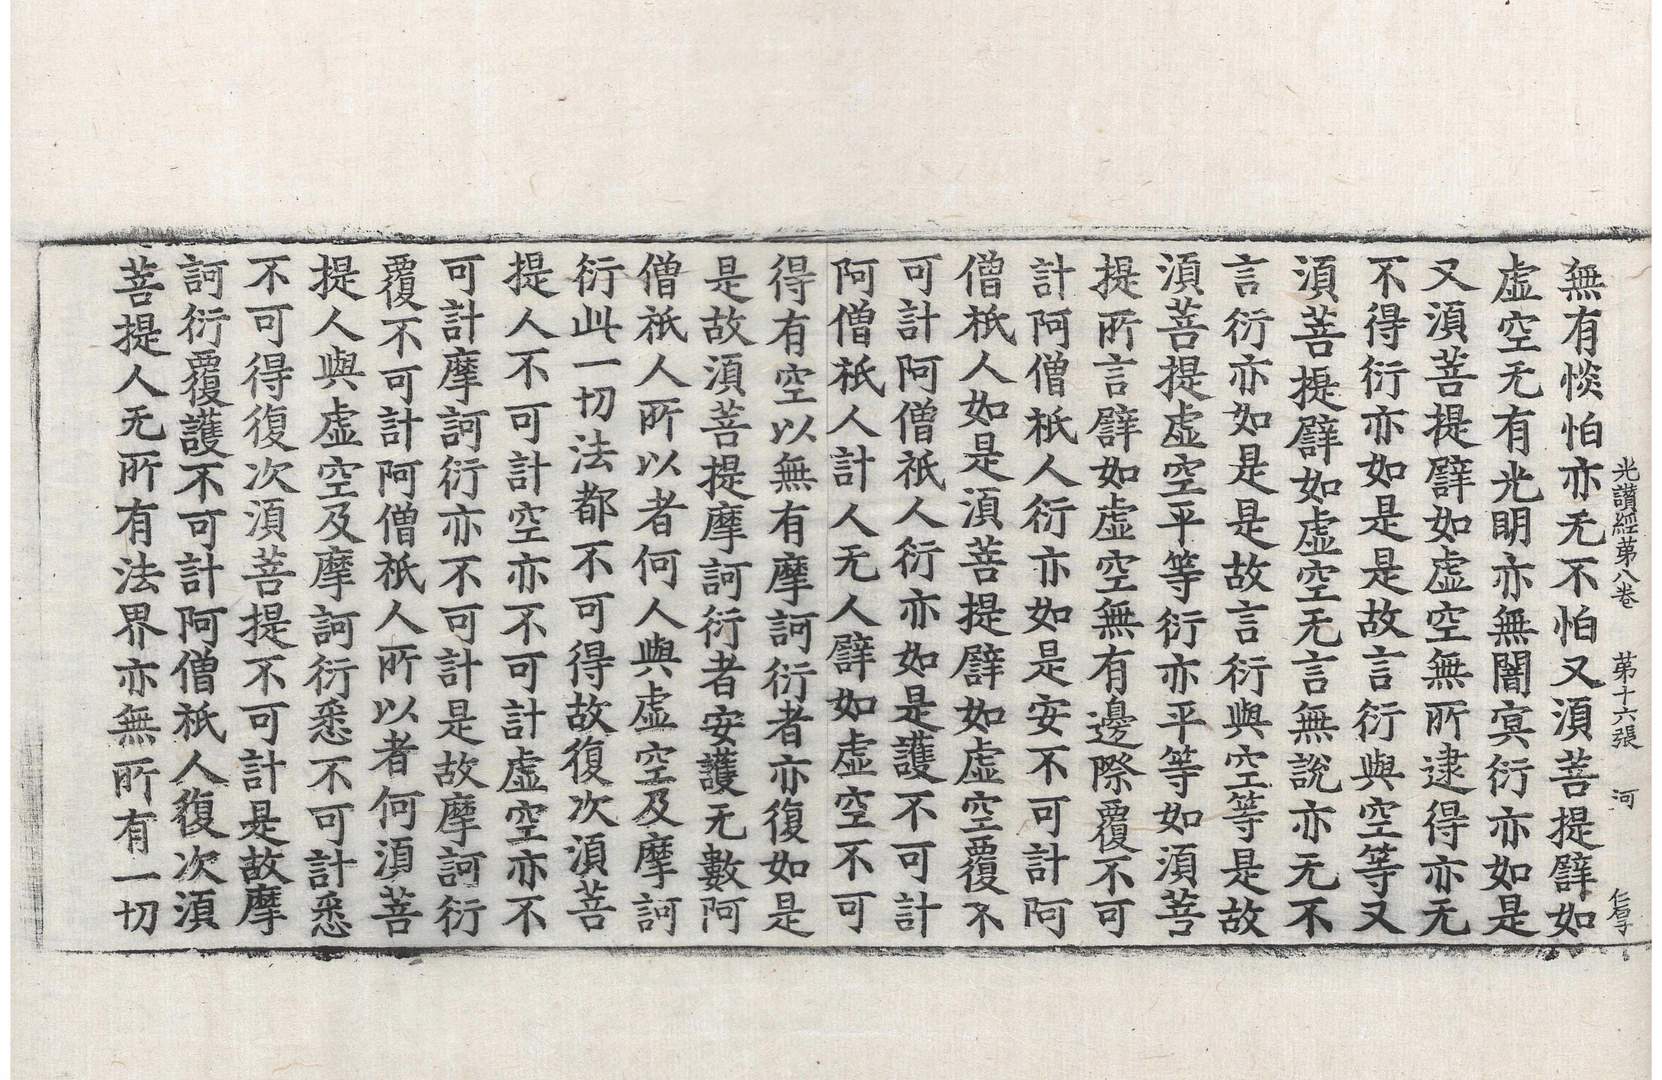 光讚經第八卷　第十六張　河
無有惔怕亦无不怕又湏菩提譬如
虛空无有光明亦無闇㝠衍亦如是
又湏菩提譬如虛空無所逮得亦无
不得衍亦如是是故言衍與空等又
湏菩提譬如虛空无言無說亦无不
言衍亦如是是故言衍與空等是故
湏菩提虛空平等衍亦平等如湏菩
提所言譬如虛空無有邊際覆不可
計阿僧祇人衍亦如是安不可計阿
僧祇人如是湏菩提譬如虛空覆不
可計阿僧祇人衍亦如是護不可計
阿僧祇人計人无人譬如虛空不可
得有空以無有摩訶衍者亦復如是
是故湏菩提摩訶衍者安護无數阿
僧祇人所以者何人與虛空及摩訶
衍此一切法都不可得故復次湏菩
提人不可計空亦不可計虛空亦不
可計摩訶衍亦不可計是故摩訶衍
覆不可計阿僧祇人所以者何湏菩
提人與虛空及摩訶衍悉不可計悉
不可得復次湏菩提不可計是故摩
訶衍覆護不可計阿僧祇人復次湏
菩提人无所有法界亦無所有一切